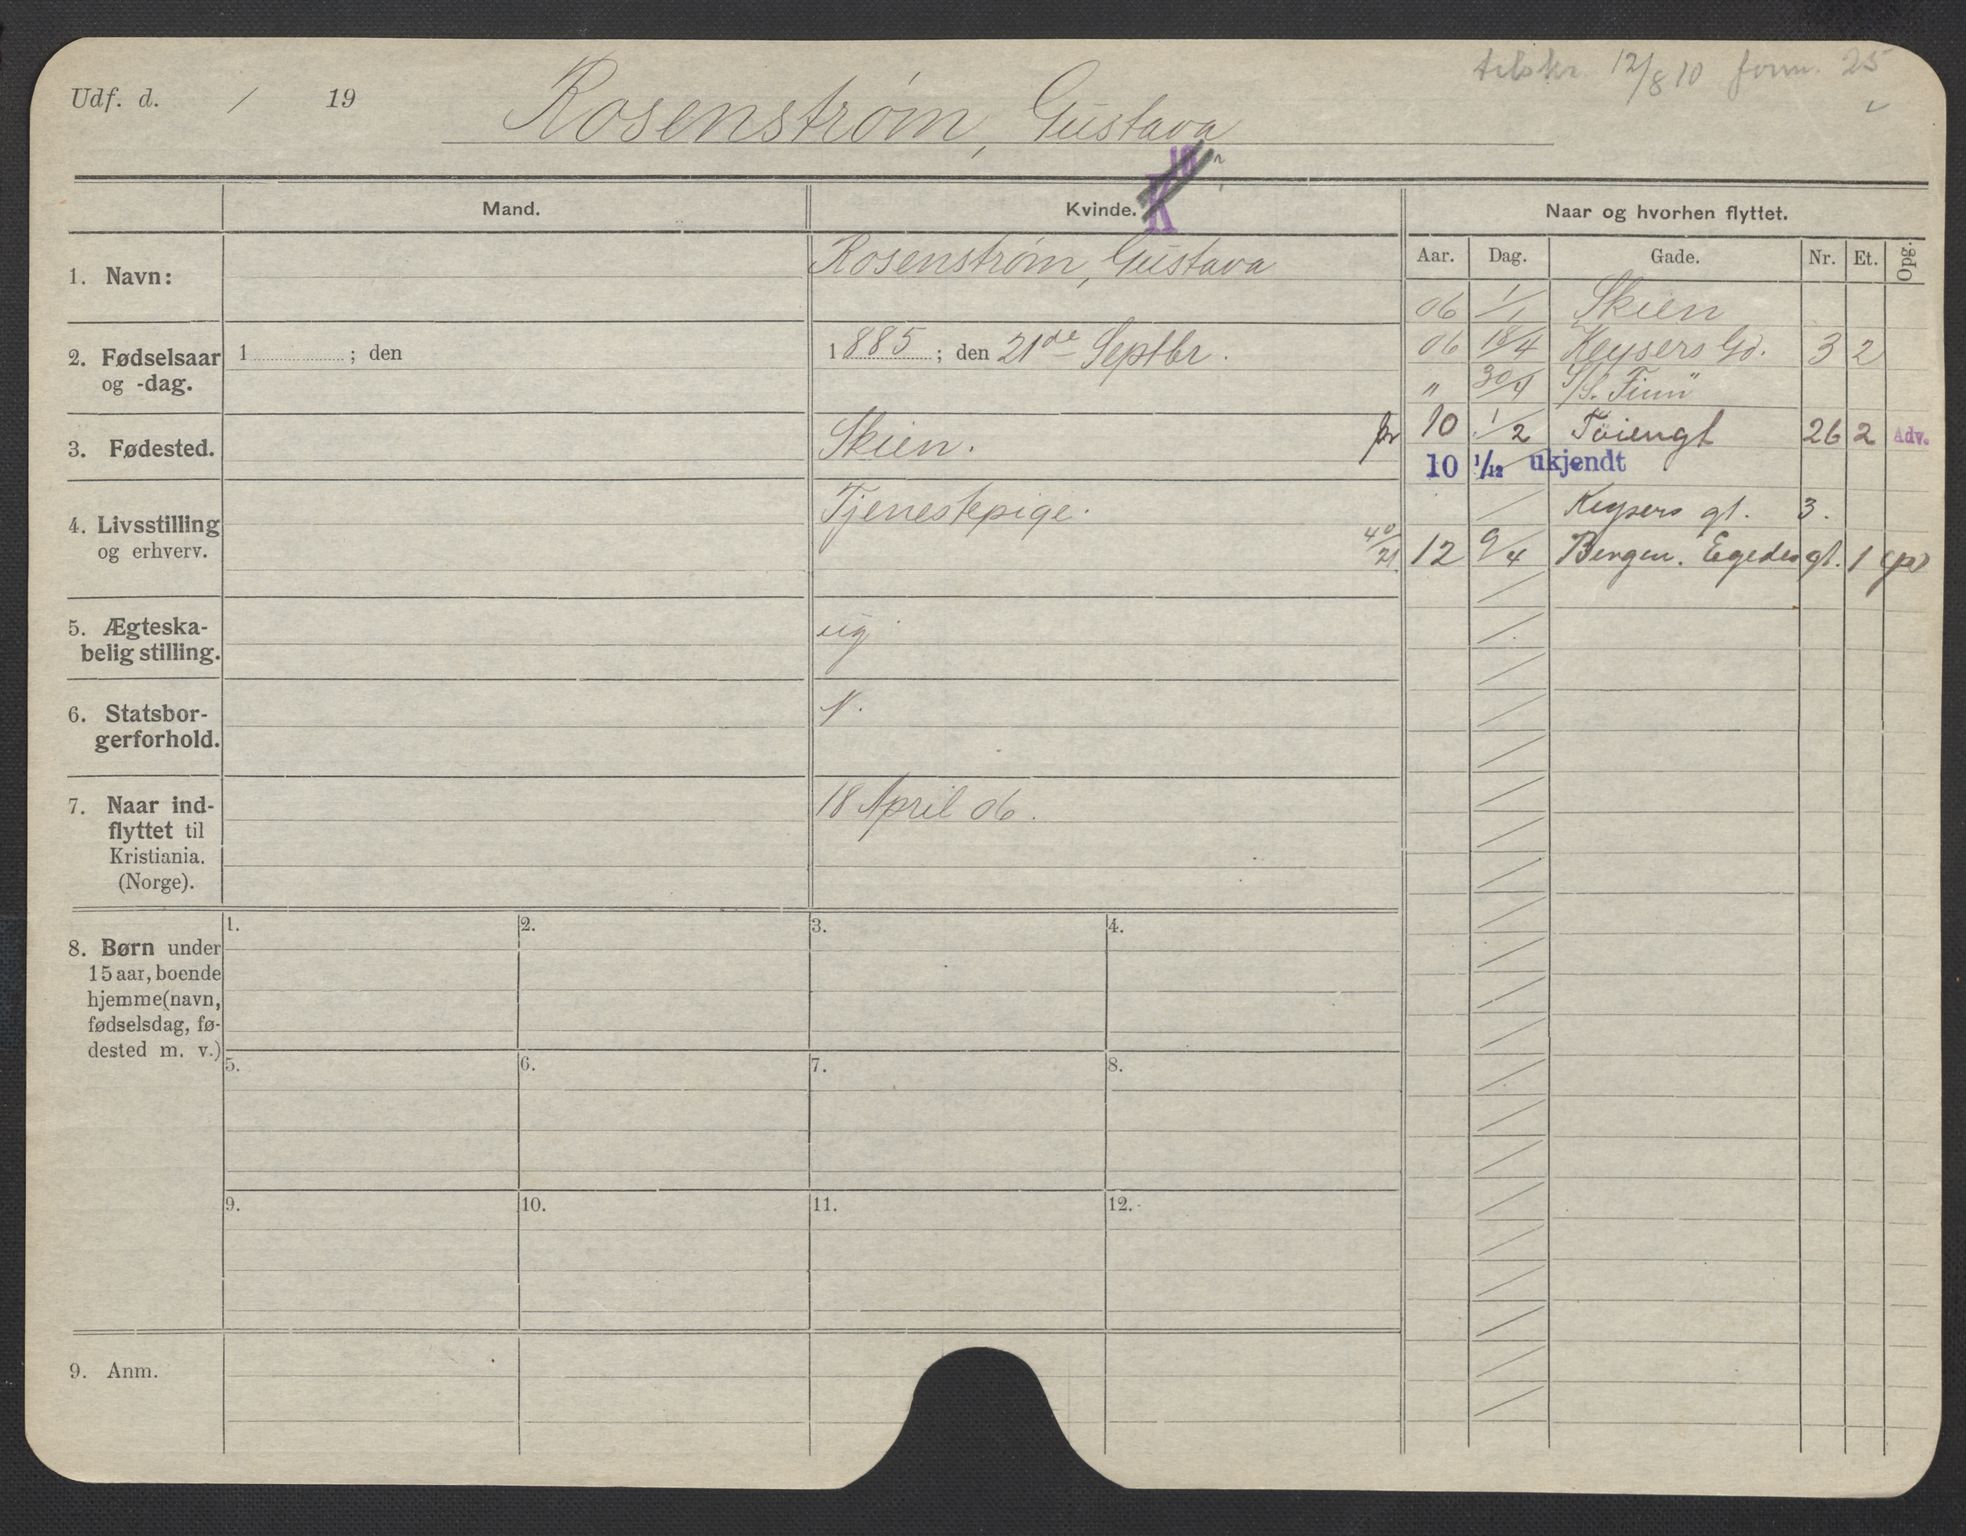 tilskr. 12/8 10 form. 25
Udf. d. / 19
Rosenstrøm, Gustava
Mand.
Kvinde. K
Naar og hvorhen flyttet.
Aar. Dag. Gade. Nr. Et. Opg.
1. Navn:
Rosenstrøm, Gustava
06 1/1 Skien
2. Fødselsaar
og -dag.
1 ; den
1885 ; den 21de Septbr.
06 18/4 Keysers Gd. 3 2
" 30/4 S/S. "Finn"
3. Fødested.
Skien.
10 1/2 Tøiengt 26 2 Adv.
10 1/12 ukjendt
4. Livsstilling
og erhverv.
Tjenestepige.
Keysers gt. 3.
40/21 12 9/4 Bergen. Egedes gt. 1 (p)
5. Ægteska-
belig stilling.
ug
6. Statsbor-
gerforhold.
N.
7. Naar ind-
flyttet til
Kristiania.
(Norge).
18 April 06.
8. Børn under
15 aar, boende
hjemme (navn,
fødselsdag, fø-
dested m. v.)
1. 2. 3. 4.
5. 6. 7. 8.
9. 10. 11. 12.
9. Anm.